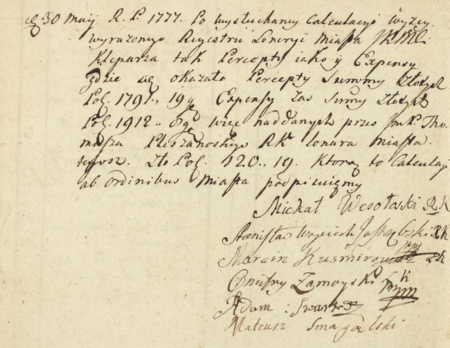 30 Maij R. P. 1777. Po wysłuchaney Calculacyi wyżey
wyrażonego Regestru Loneryi Miasta JKMCi
Kleparza tak Percepty iako y Expensy
gdzie się okazało Percepty Summy Złotych
Pol. 1791., 19 g Expensy zas Sumy Złotych
Pol. 1912. 8 g więc naddanych przez JmP. Tho-
masza R. lonara miasta
Zło Pol. 120., 19. Ktorą to Calculacyi
ab ordinibus Miasta podpisuięmy
Michał Wesołaski RK
Stanisław Woyciech RK
Marcin RK
Dmitry Zamoyski
Adam
Mateusz Smagalski